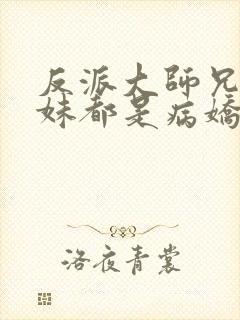 反派大師兄
妹都是病嬌
洛夜青裳